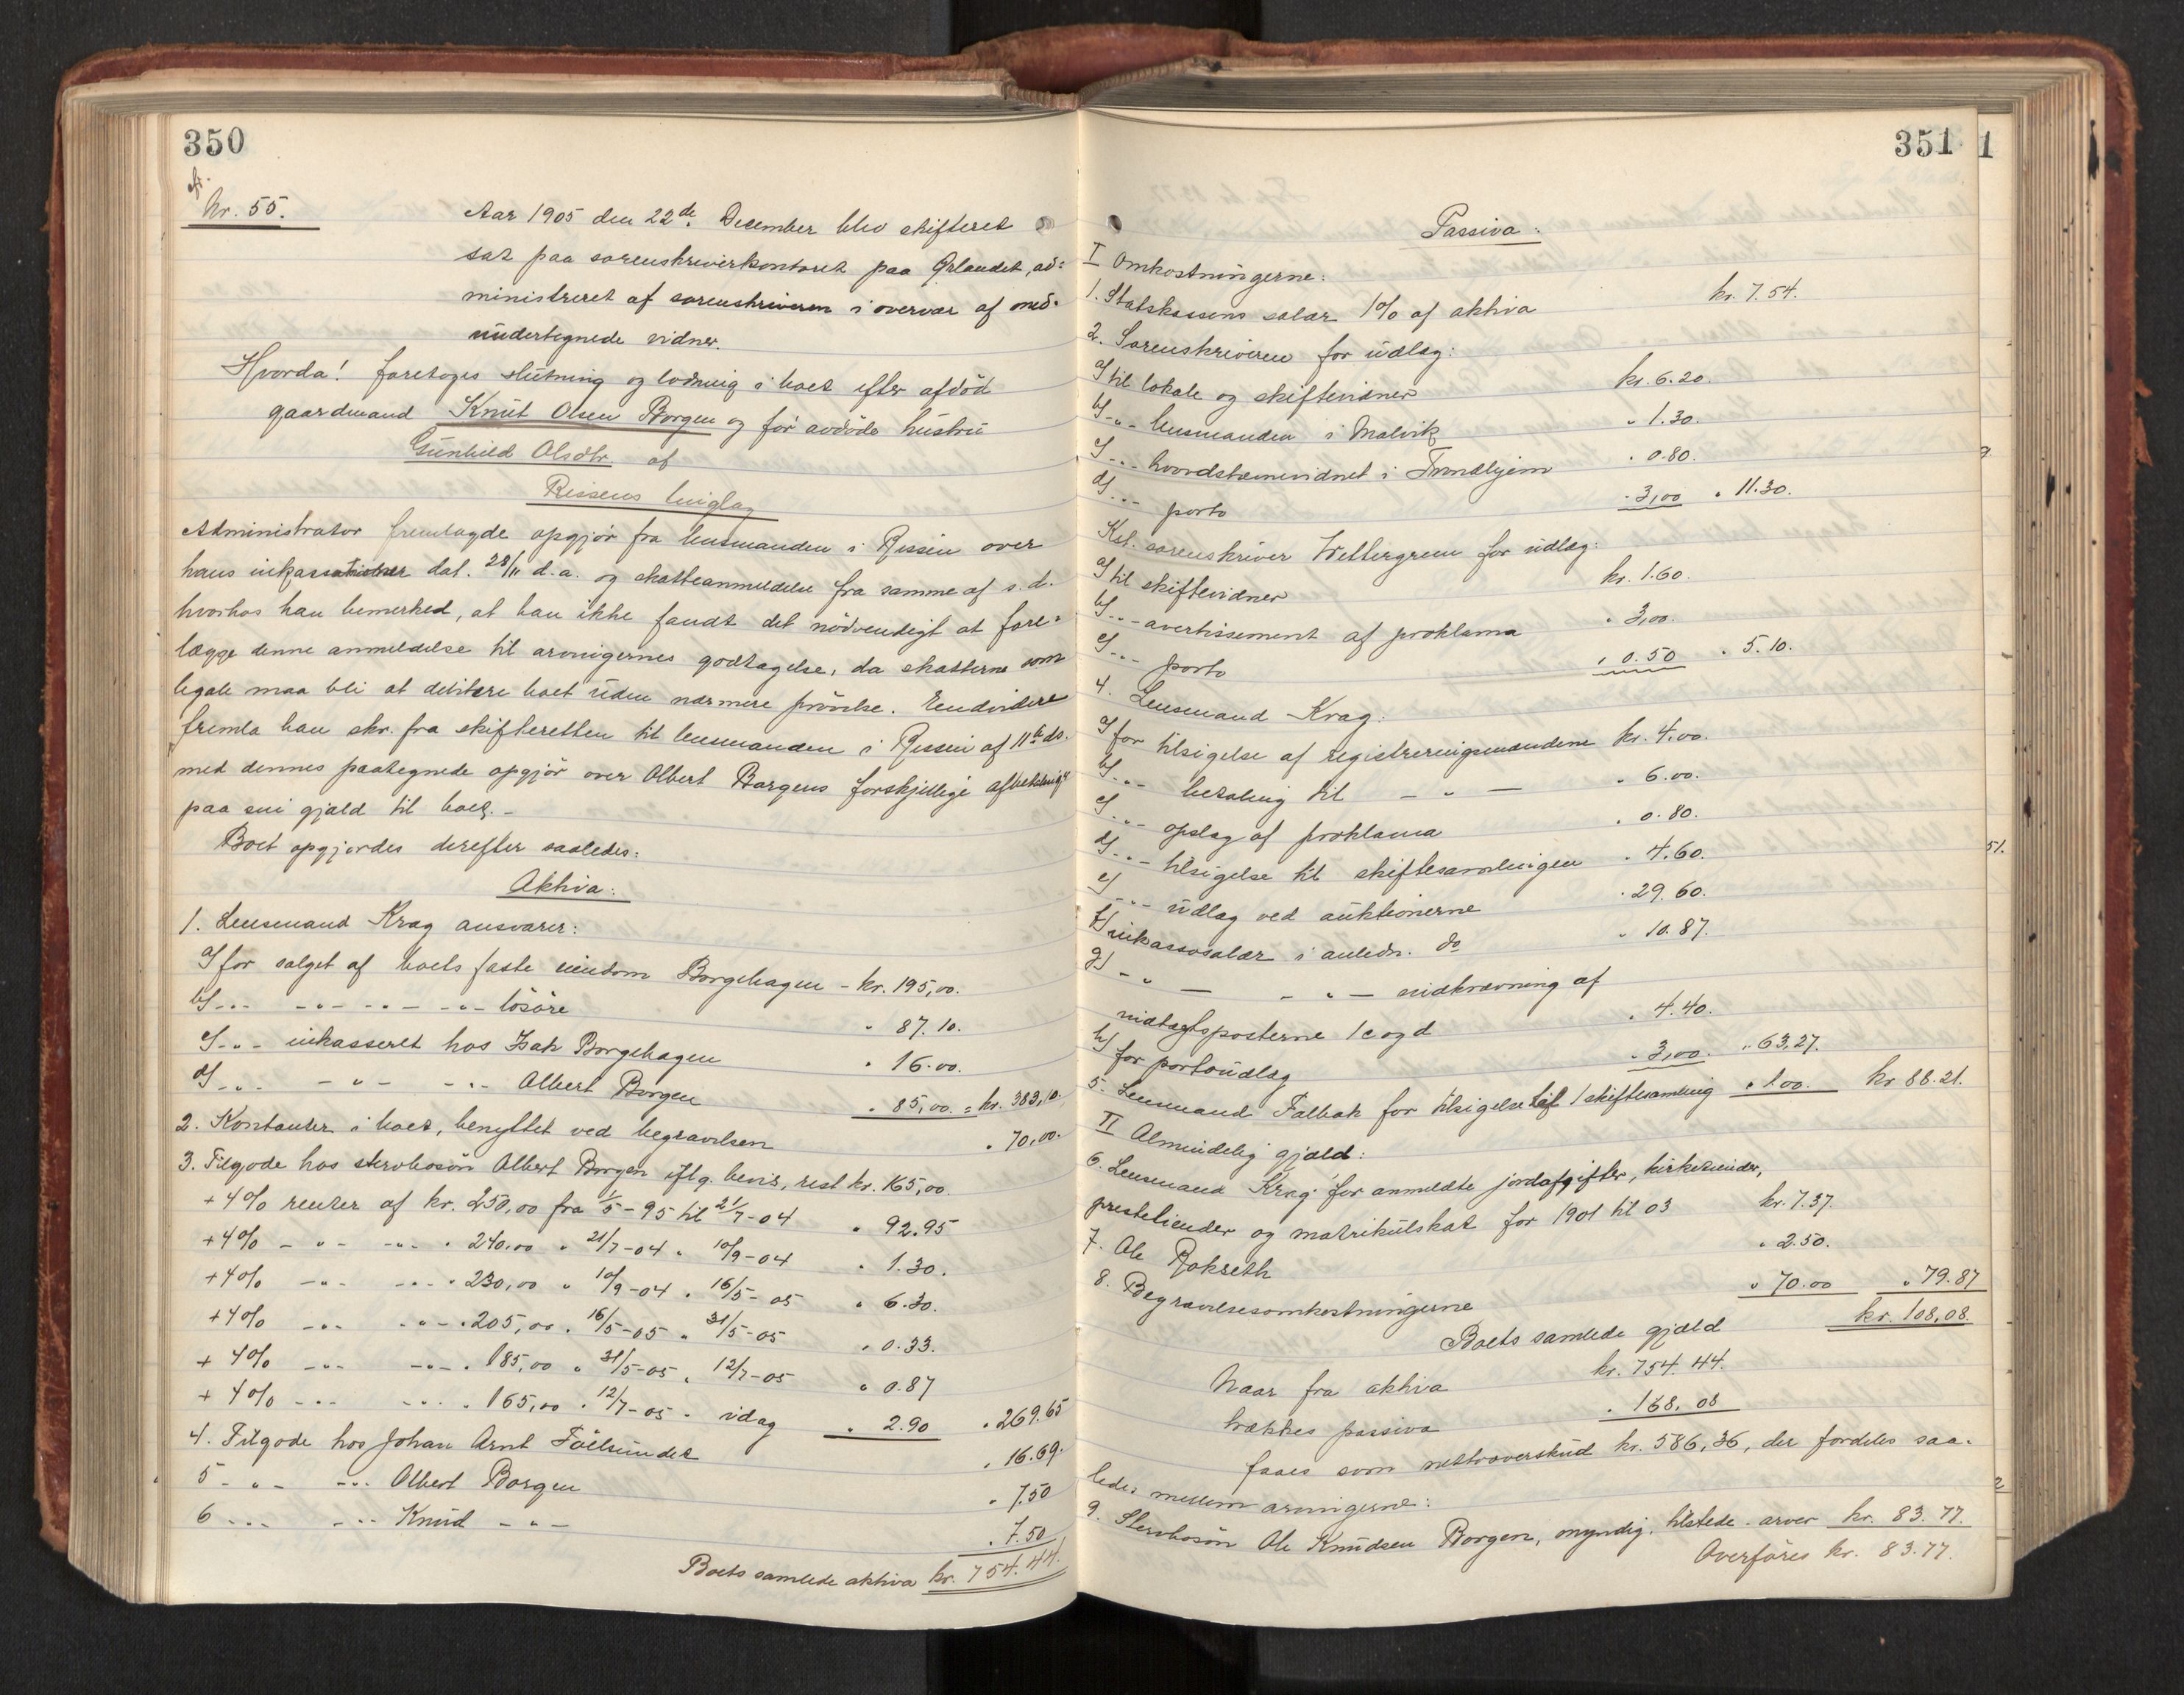 350
cfr.
Nr. 55.
Aar 1905 den 22de December blev skifteret
sat paa sorenskriverkontoret paa Ørlandet, ad=
ministreret af sorenskriveren i overvær af med=
undertegnede vidner.
Hvorda! foretoges slutning og lodning i boet efter afdöd
gaardmand Knut Olsen Borgen og för avdöde hustru
Gunhild Olsdtr. af
Rissens tinglag
Administrator fremlagde opgjör fra lensmanden i Rissen over
hans inkassationer dat. 28/11 d.a. og skatteanmeldelse fra samme af s.d.
hvorhos han bemerked, at han ikke fandt det nödvendigt at fore=
lægge denne anmeldelse til arvingernes godtagelse, da skatterne som
legale maa bli at debitere boet uden nærmere prövelse. Endvidere
fremla han skr. fra skifteretten til lensmanden i Rissen af 11te ds.
med dennes paategnede opgjör over Albert Borgens forskjellige afbetaling
paa sin gjæld til boet.-
Boet opgjordes derefter saaledes:
Aktiva:
1. Lensmand Krag ansvarer:
a) for salget af boets faste eiendom Borgehagen - kr. 195,00.
b) -"- -"- -"- -"- lösöre " 87.10.
c) -"- inkasseret hos Isak Borgehagen " 16.00.
d) -"- -"- -"- Albert Borgen " 85,00. = kr. 383,10.
2. Kontanter i boet, benyttet ved begravelsen " 70,00.
3. Tilgode hos stervbosön Albert Borgen iflg. bevis, rest kr. 165,00
+ 4% renter af kr. 250,00 fra 1/5-95 til 21/7-04 " 92.95
+ 4% -"- -"- " 240.00 " 21/7-04 " 10/9-04 " 1.30.
+ 4% -"- -"- " 230,00 " 10/9-04 " 16/5-05 " 6.30.
+ 4% -"- -"- " 205,00 " 16/5-05 " 31/5-05 " 0.33.
+ 4% -"- -"- " 185,00 " 31/5-05 " 12/7-05 " 0.87
+ 4% -"- -"- " 165,00 " 12/7-05 " idag " 2.90 " 269.65
4. Tilgode hos Johan Arnt " 16.69.
5 -"- -"- Albert Borgen " 7.50
6 -"- -"- Knud -"- " 7.50
Boets samlede aktiva kr. 754.44.
351
1
Passiva:
I Omkostningerne:
1. Statskassens salær 1% af aktiva kr. 7.54.
2. Sorenskriveren for udlæg:
a) til lokale og skiftevidner kr. 6.20.
b) -"- lensmanden i Malvik " 1.30.
c) -"- hovedstævnevidnet i Trondhjem " 0.80.
d) -"- porto " 3,00 " 11.30.
Kst. sorenskriver Wettergreen for udlæg:
a) til skiftevidner kr. 1.60.
b) -"- avertissement af proklama " 3,00.
c) -"- porto " 0.50 " 5.10.
4. Lensmand Krag:
a) for tilsigelse af registreringsmændene kr. 4.00.
b) -"- betaling til - " - " 6.00.
c) -"- opslag af proklama " 0.80.
d) -"- tilsigelse til skiftesamlingen " 4.60.
e) -"- udlæg ved auktionerne " 29.60.
f) inkassosalær i anledn. do " 10.87.
g) -"- -"- indkrævning af
indtægtsposterne 1 c og d " 4.40.
h) for portoudlæg " 3,00. " 63,27.
5. Lensmand Falbak for tilsigelse til 1 skiftesamling " 1.00. kr 88.21.
II Almindelig gjæld:
6. Lensmand Krag for anmeldte jordafgifter, kirketiender,
prestetiender og matrikulskat for 1901 til 03 kr. 7.37.
7. Ole Rokseth " 2.50.
8. Begravelsesomkostningerne " 70.00 " 79.87
Boets samlede gjæld kr. 168,08.
Naar fra aktiva kr. 754.44.
trækkes passiva " 168,08
faaes som nettooverskud kr. 586,36, der fordeles saa-
ledes mellem arvingerne:
9. Stervbosön Ole Knudsen Borgen, myndig. tilstede - arver kr. 83.77.
Overföres kr. 83.77.